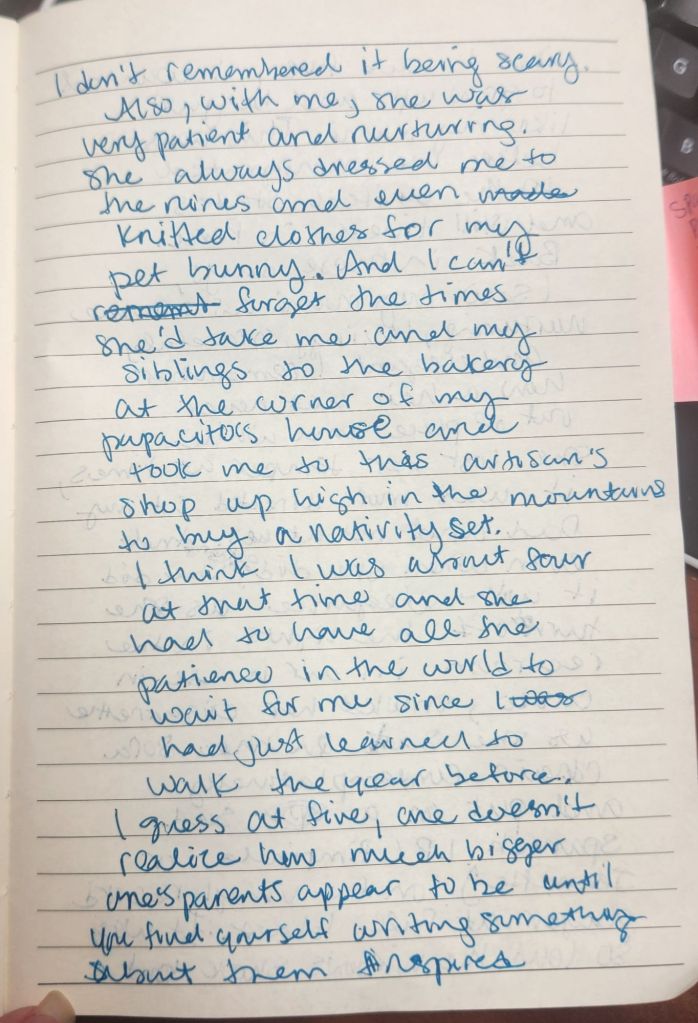 I don't remembered it being scary.
Also, with me, she was
very patient and nurturing.
She always dressed me to
the nines and even made
knitted clothes for my
pet bunny. And I can't
rememt forget the times
she'd take me and my
siblings to the bakery
at the corner of my
papacitos house and
took me to this artisan's
shop up high in the mountains
to buy a nativity set.
I think I was about four
at that time and she
had to have all the
patience in the world to
wait for me since I was
had just learned to
walk the year before.
I guess at five, one doesn't
realize how much bigger
one's parents appear to be until
you find yourself writing something
about them inspires
G
B